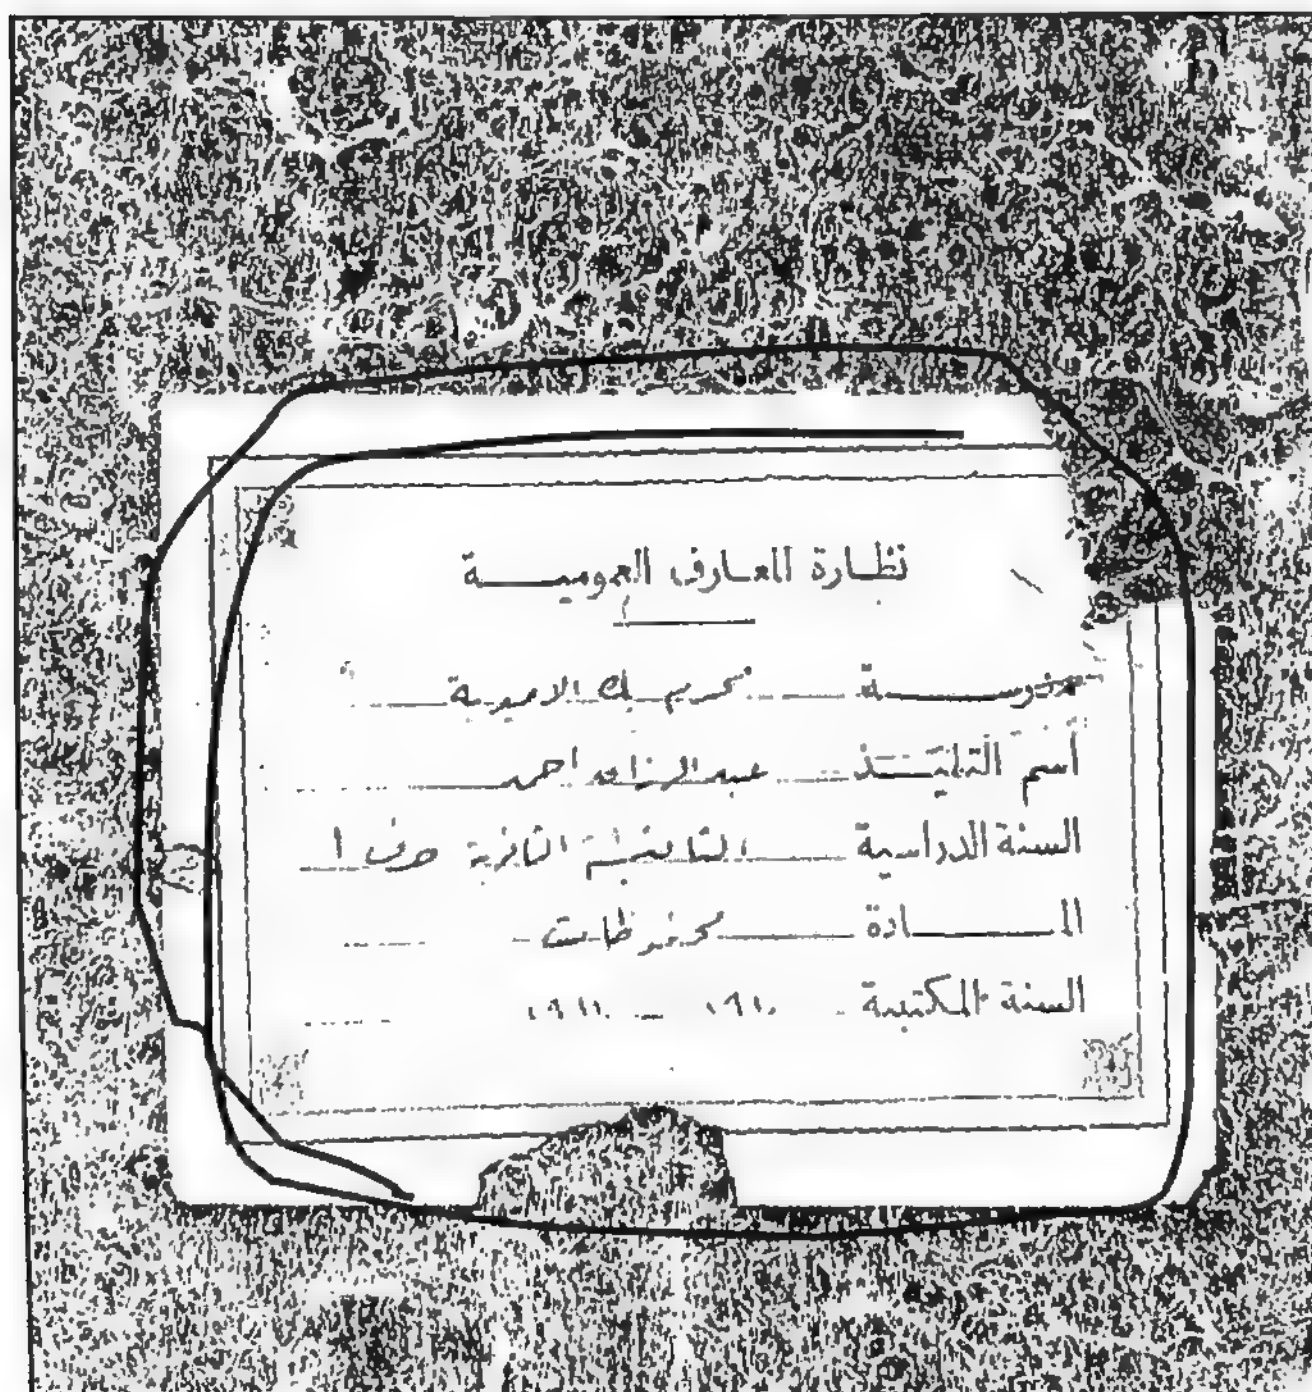 نظارة المعارف العمومية
مدرسة محرم بك الاميرية
اسم التلميذ عبد احمد
السنة الدراسية الثانية
المادة محفوظات
السنة المكتبية ١٩١٠ — ١٩١١